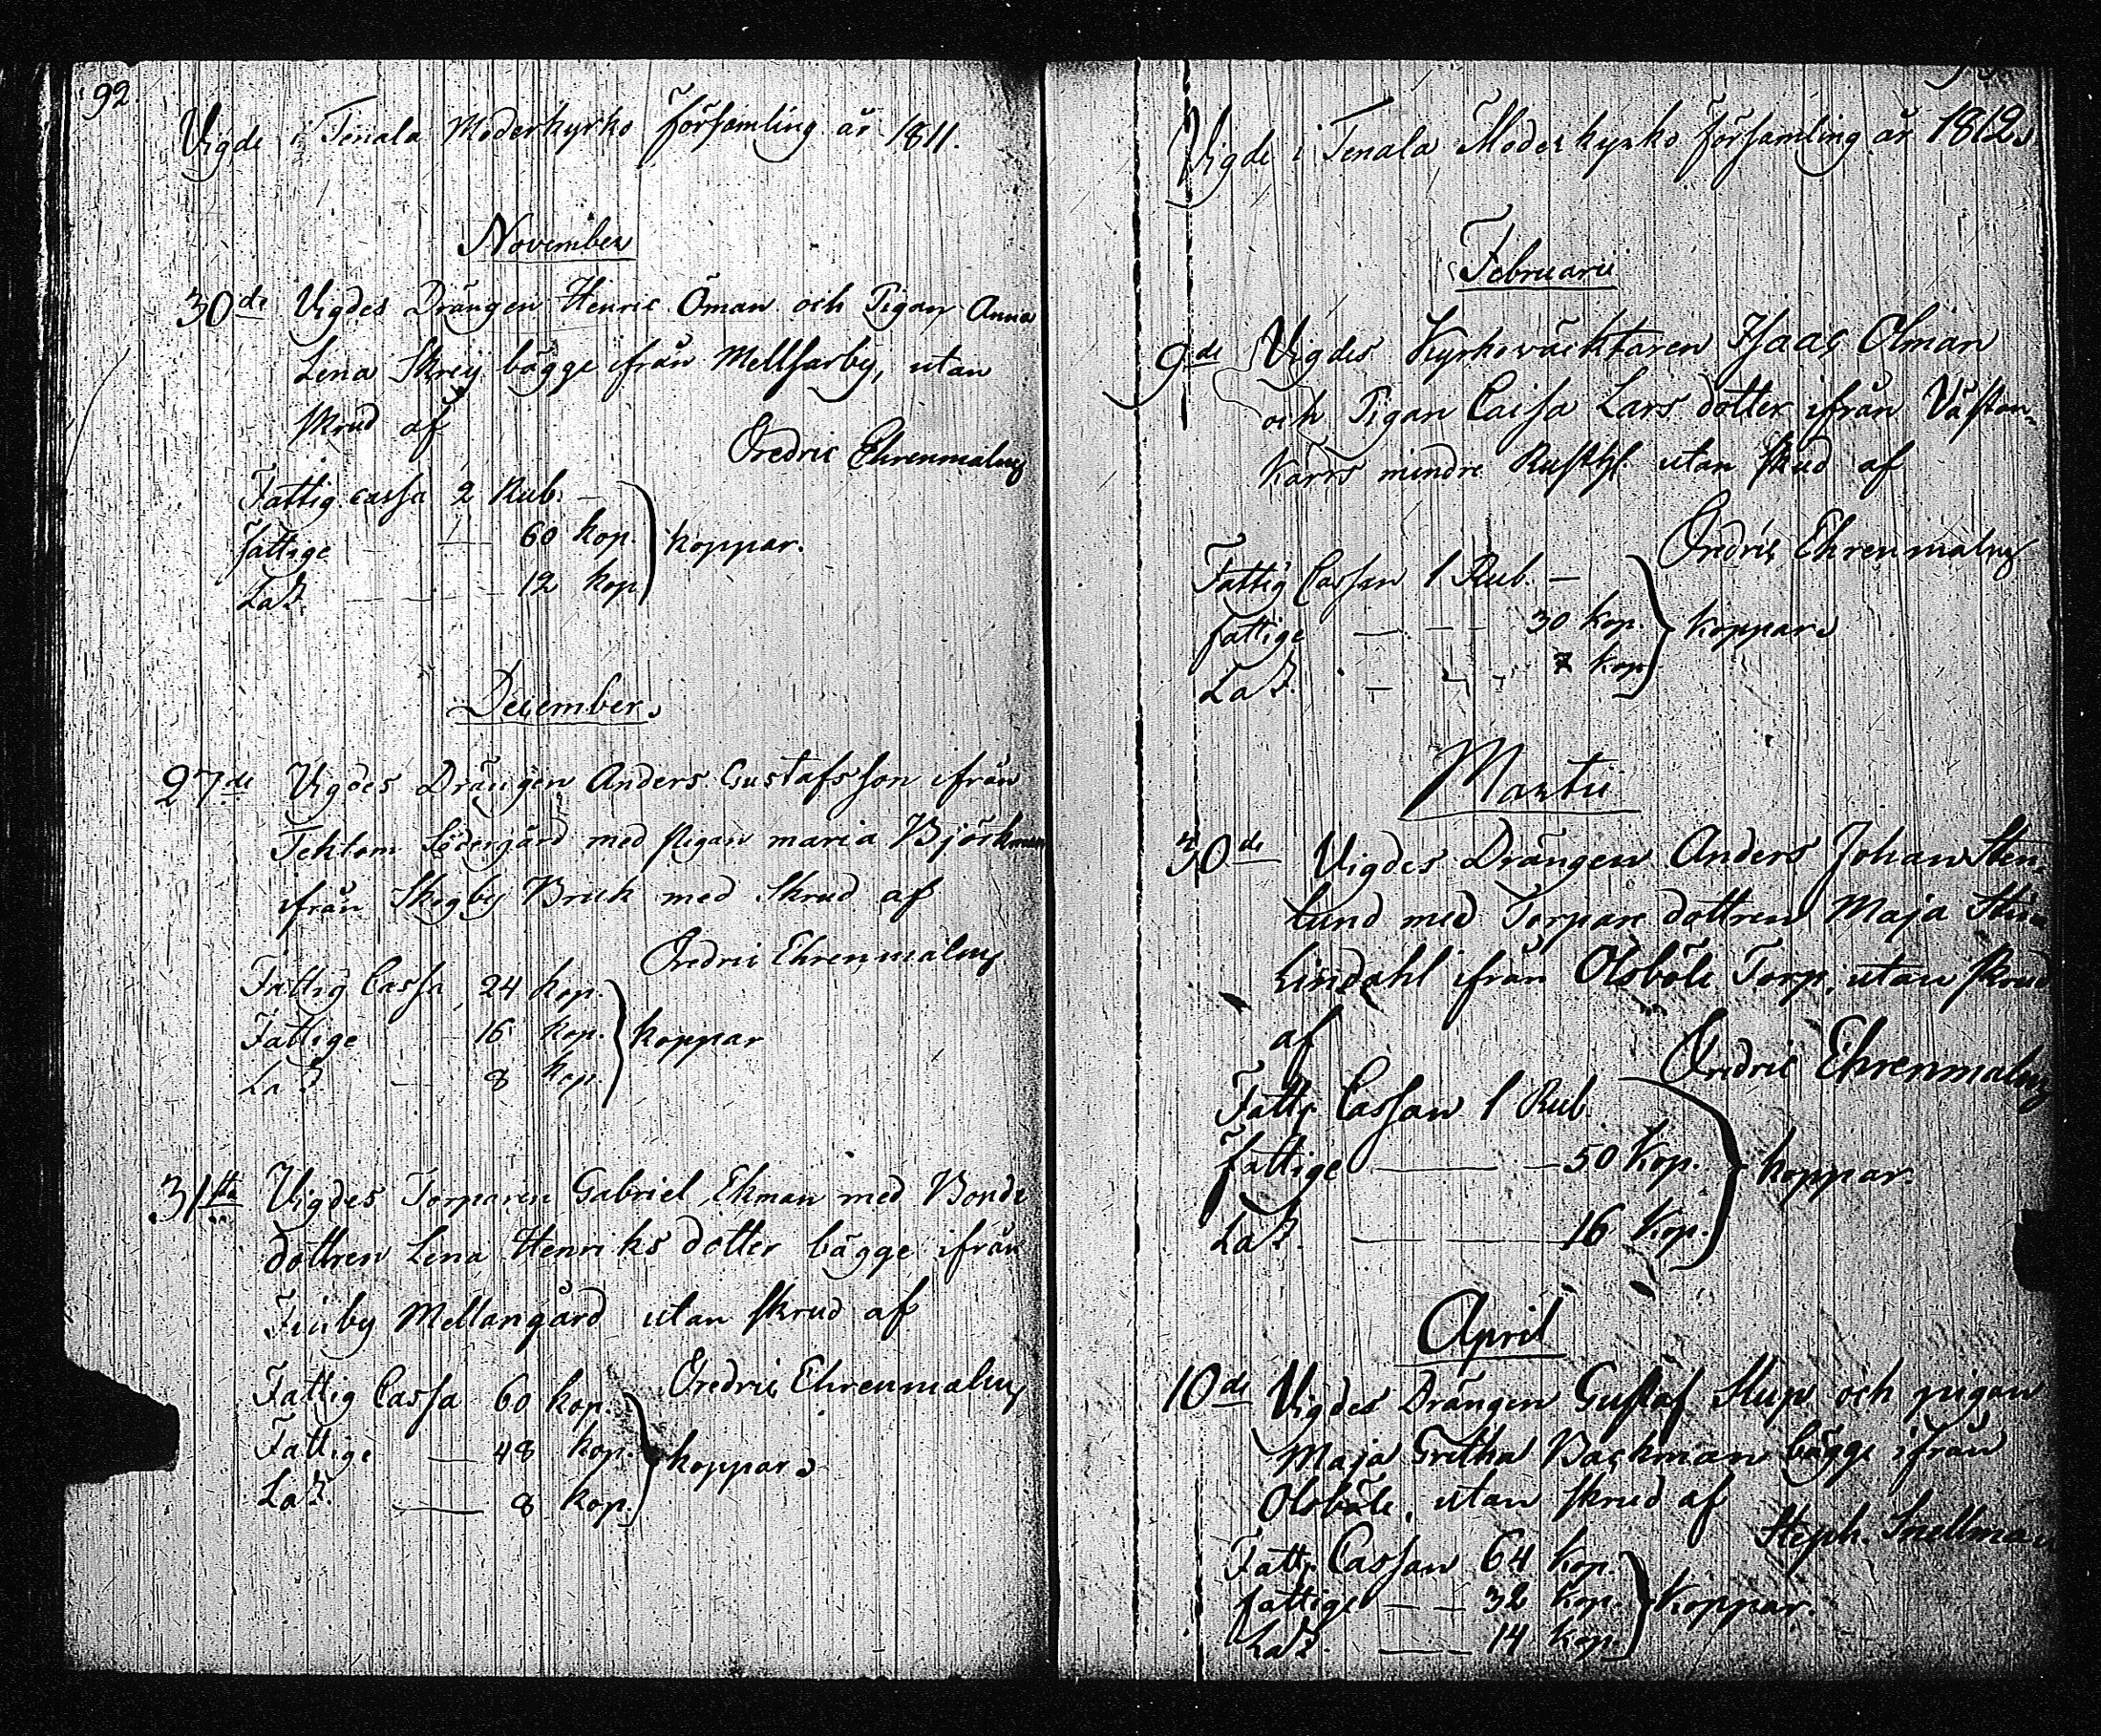 92.
Vigde i Tenala Moderkyrko församling år 1811.
November
30de Vigdes Drängen Henric Öman och Pigan Anna
Lena Skrey bägge ifrån Mellsarby, utan
skrud af
Fredric Ehrenmalm
Fattig cassa 2 Rub. —
fattige — — 60 kop. koppar.
Laz. — — — 12 kop
December
27de Vigdes Drängen Anders Gustafsson ifrån
Tektom Södergård med pigan maria Björkman
ifrån Skogby Bruk med Skrud af
Fredric Ehrenmalm
Fattig Cassa 24 kop.
Fattige 16 kop. koppar
Laz. — 8 kop
31sta Vigdes Torparen Gabriel Ekman med Bonde
dottren Lena Henriks dotter bägge ifrån
Finby Mellangård utan skrud af
Fredric Ehrenmalm
Fattig Cassa 60 kop.
Fattige — 48 kop. koppar
Laz. — 8 kop.
Vigde i Tenala Moderkyrko församling år 1812.
Februarii
9de Vigdes Kyrkoväcktaren Isaac Öman
och Pigan Caisa Lars dotter ifrån Västan-
Kärrs mindre Rusthl. utan skrud af
Fredric Ehrenmalm
Fattig Cassan 1 Rub. —
fattige — — — 30 kop. koppar
Laz. — — — 7 kop
Martii
30de Vigdes Drängen Anders Johan Sten-
lund med Torpare dottren Maja Stina
Lindahl ifrån Olsböle Torp, utan skrud
af
Fredric Ehrenmalm
Fattg Cassan 1 Rub
fattige — — 50 kop. koppar.
Laz. — — 16 Kop.
April
10de Vigdes Drängen Gustaf Stup och pigan
Maja Gretha Backman bägge ifrån
Olsböle, utan skrud af
Steph. Snellman
Fattg Cassan 64 kop.
fattige — — 32 kop. Koppar.
Laz — — 14 kop.